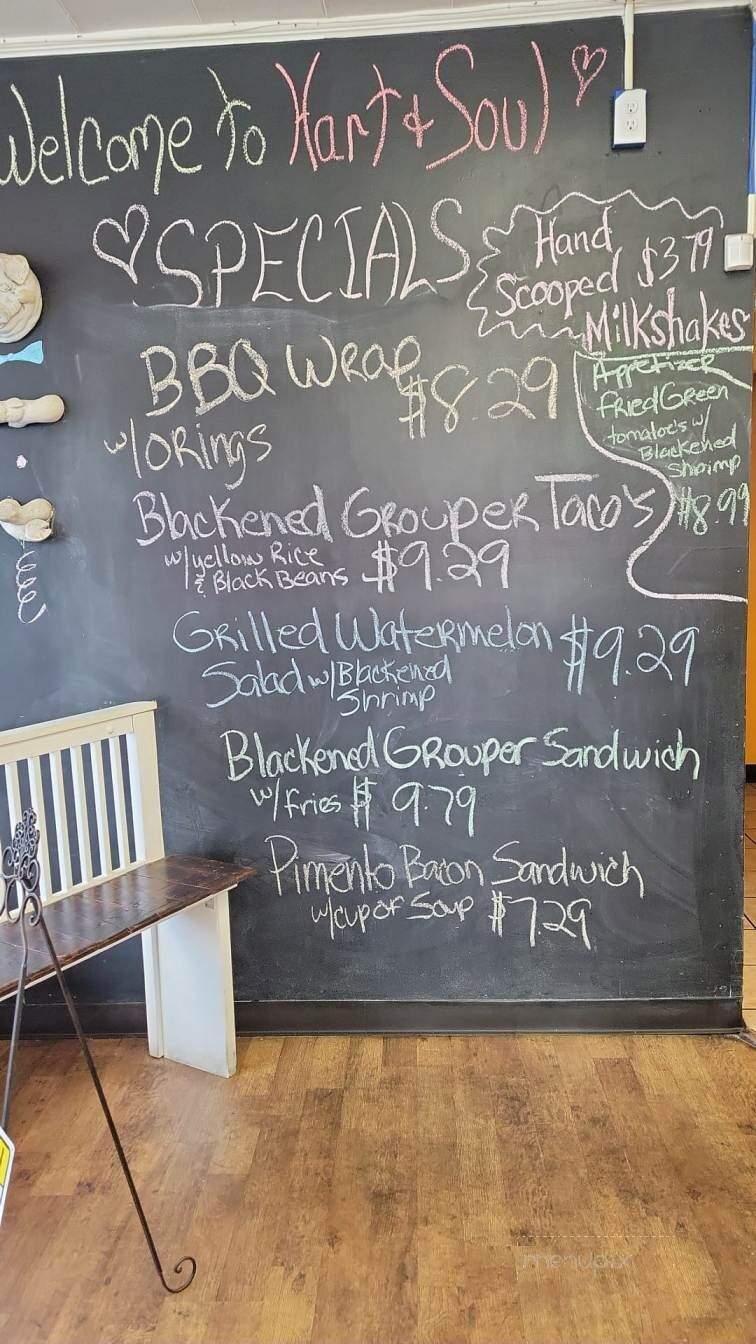 Welcome to Hart & Soul
SPECIALS
Hand
Scooped $3.79
Milkshakes
BBQ Wrap
$8.29
w/ORings
Appetizer
Fried Green
tomatoe's w/
Blackened
Shrimp
$8.99
Blackened Grouper Taco's
w/yellow Rice
& Black Beans $9.29
Grilled Watermelon $9.29
Salad w/Blackened
Shrimp
Blackened Grouper Sandwich
w/fries $9.79
Pimento Bacon Sandwich
w/cup of Soup $7.29
menupix